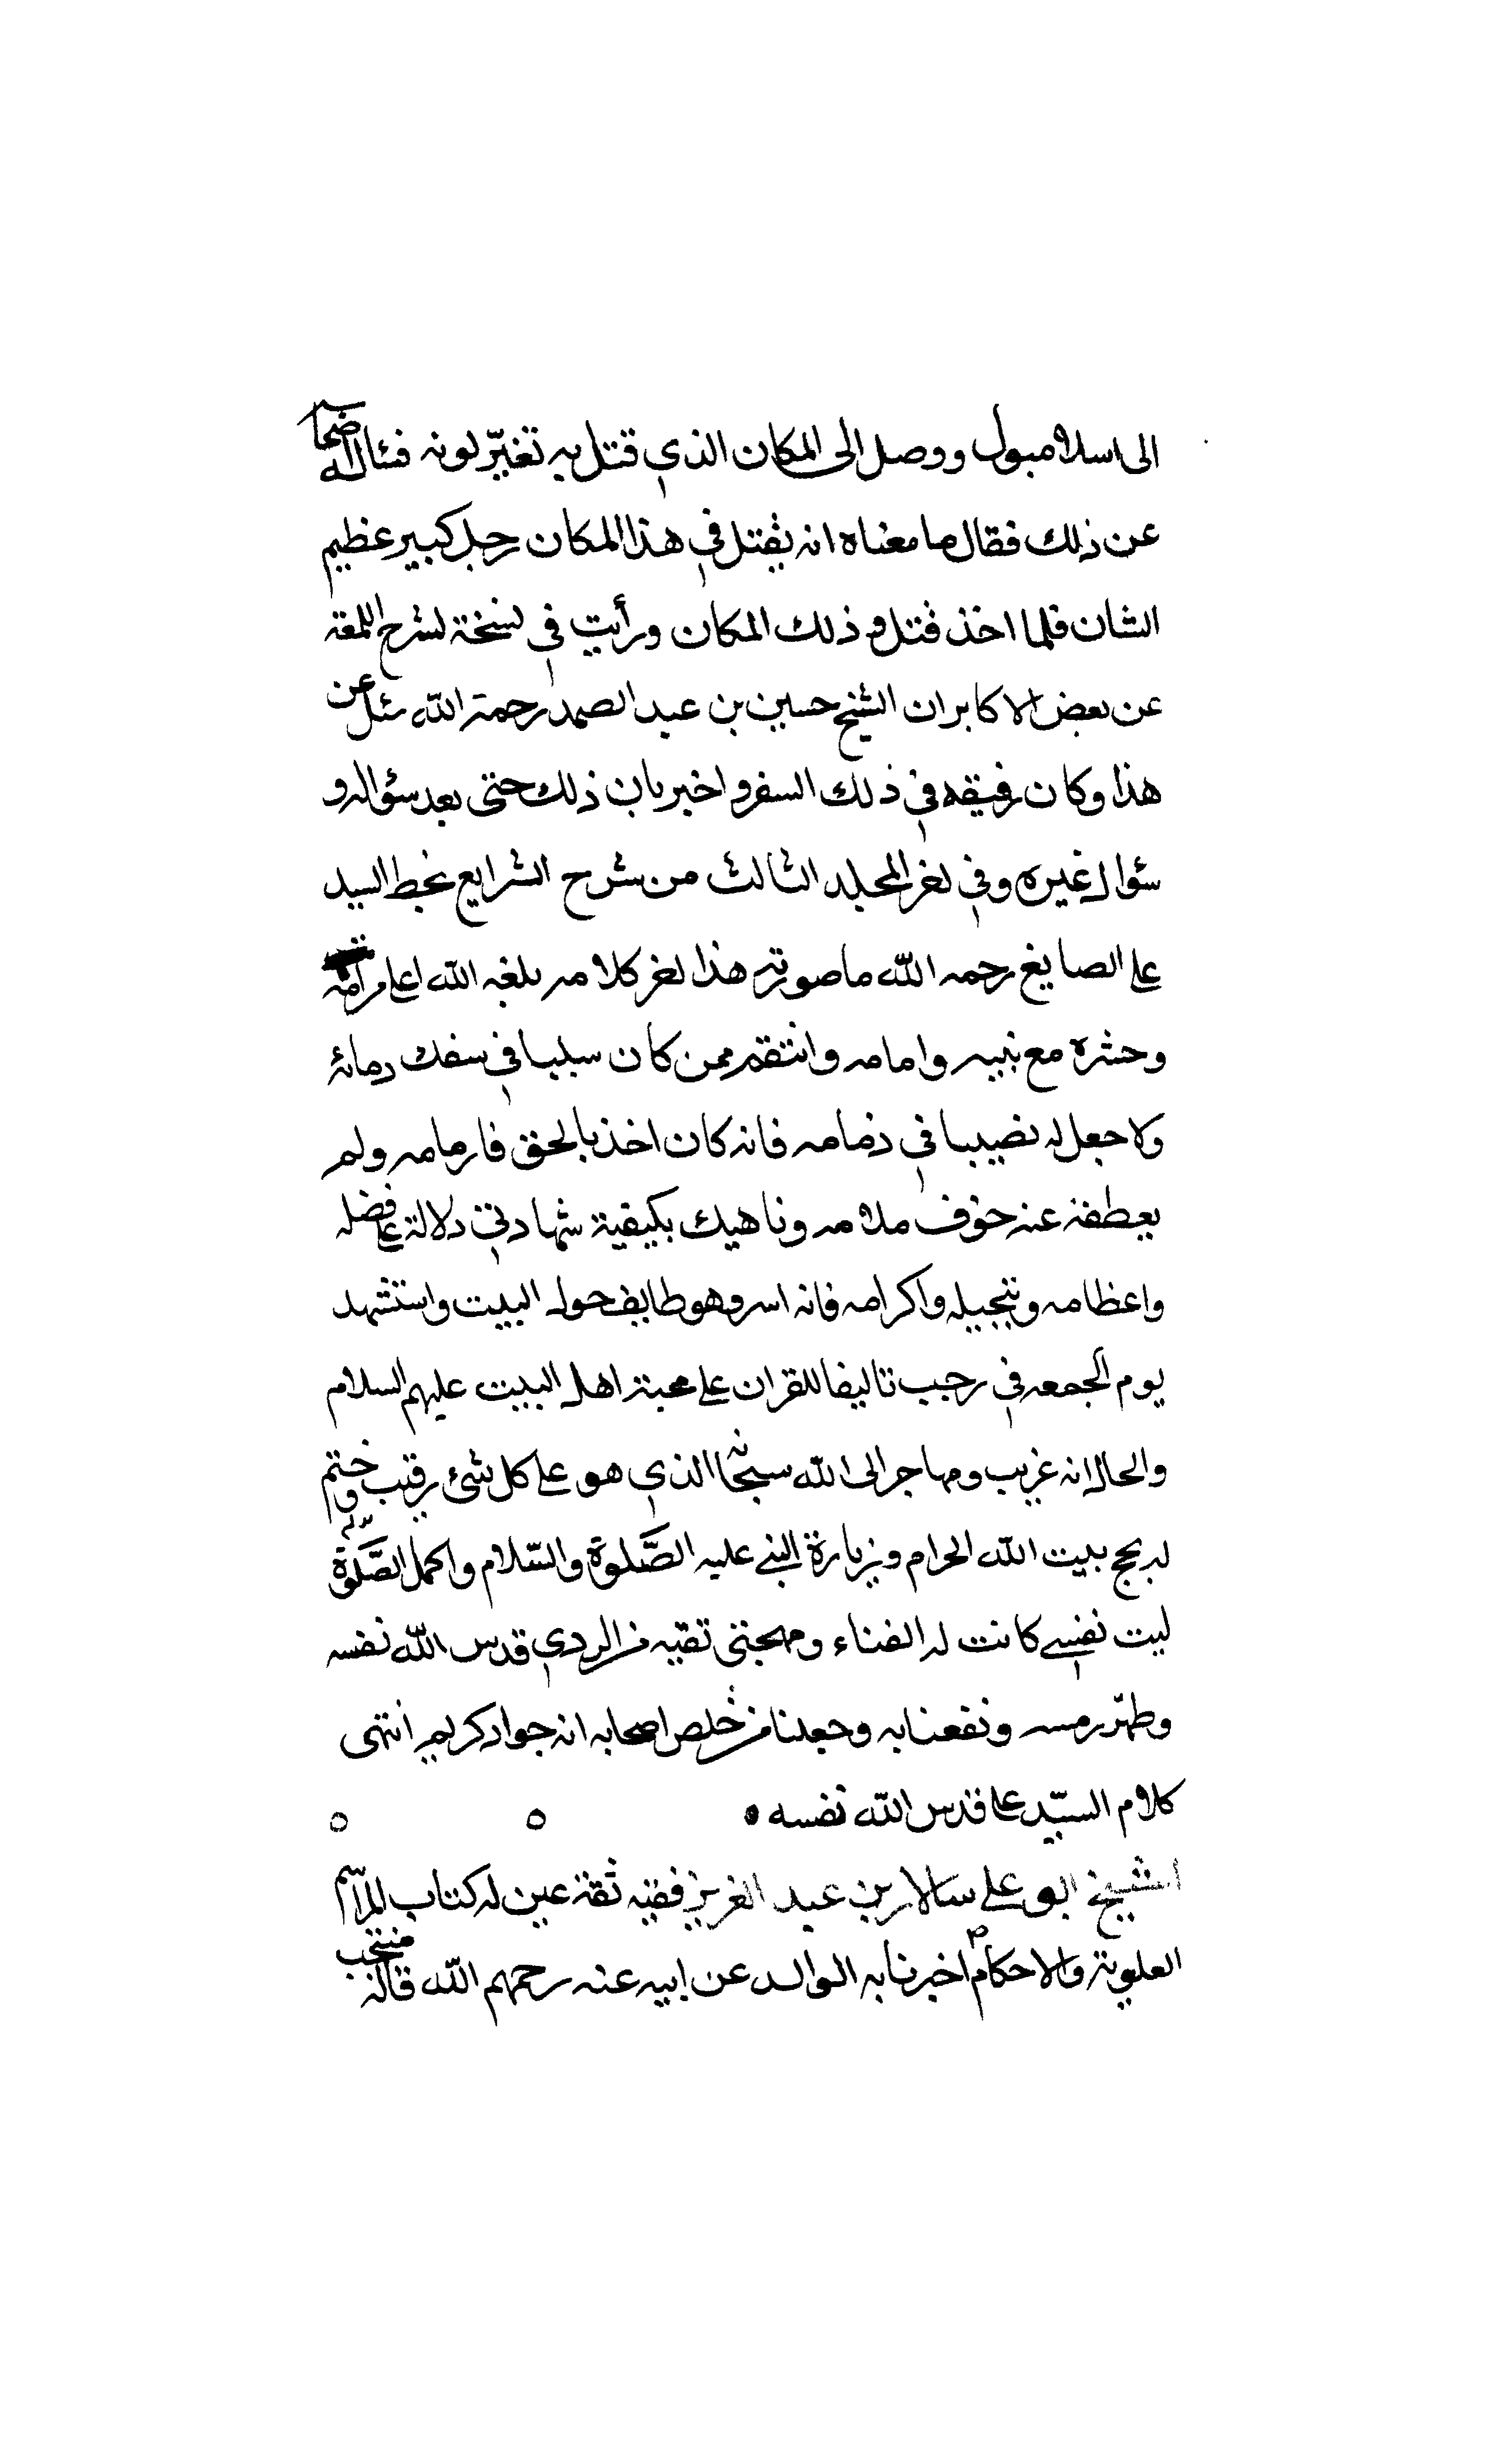 الى اسلامبول ووصل الى المكان الذي قتل به تغيّر لونه فسئاله اصحابه
عن ذلك فقال ما معناه انه يقتل في هذا المكان رجل كبير عظيم
الشان فلما اخذ قتل في ذلك المكان ورأيت في نسخة لشرح اللمعة
عن بعض الاكابر ان الشيخ حسين بن عبد الصمد رحمة الله سئل عن
هذا وكان رفيقه في ذلك السفر واخبر بان ذلك حتى بعد سؤاله و
سؤال غيره وفي اخر المجلد الثالث من شرح الشرايع بخط السيد
على الصايغ رحمه الله ما صورته هذا اخر كلامه بلغه الله اعلى مرامه
وحشره مع نبيه وامامه وانتقم ممن كان سببا في سفك دمائه
ولا جعل له نصيبا في ذمامه فانه كان اخذ بالحق فا رمامه ولم
يعطفه عنه خوف ملامه وناهيك بكيفية شهادته في دلالة على فضله
واعظامه وتبجيله واكرامه فانه اسر وهو طايف حول البيت واستشهد
يوم الجمعه في رجب تاليفا للقران على محبة اهل البيت عليهم السلام
والحال انه غريب ومهاجر الى الله سبحانه الذي هو على كل شئ رقيب وختم
له بحج بيت الله الحرام وزيارة النبي عليه الصّلوة والسّلام واكمل الصّلوة
ليت نفسي كانت له الفداء ومهجتي تقيه من الردي قدس الله نفسه
وطهّر رمسه ونفعنا به وجعلنا من خلص اصحابه انه جواد كريم انتهى
كلام السيّد على قدس الله نفسه
الشيخ ابو على سالار بن عبد العزيز فقيه ثقة عين له كتاب المراسم
العلوية والاحكام اخبرنا به الوالد عن ابيه عنه رحمهم الله قاله منتجب